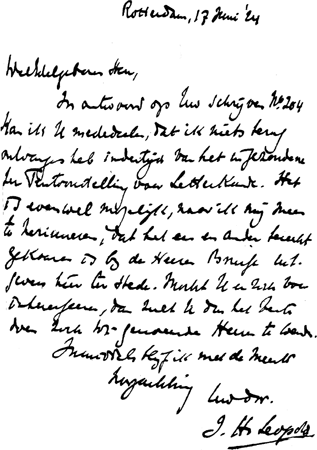 Rotterdam, 17 Juni '24
WelEdelgeboren Heer,
In antwoord op Uw schrijven No. 204
kan ik U mededeelen, dat ik niets terug
ontvangen heb indertijd van het ingezondene
ter Tentoonstelling voor Letterkunde. Het
is evenwel mogelijk, naar ik mij meen
te herinneren, dat het een en ander terecht
gekomen is bij de Heeren Brusse uit-
gevers hier ter stede. Mocht U er zich voor
interesseeren, dan zult U dus het beste
doen zich tot genoemde Heeren te wenden.
Inmiddels blijf ik met de meeste
hoogachting
Uw dw.
J. H. Leopold